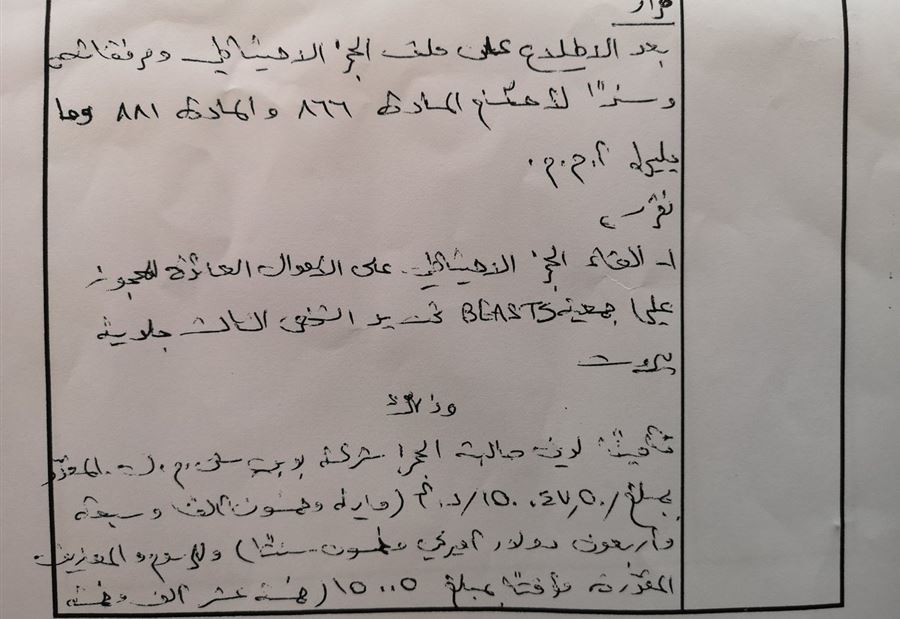 قرار
بعد الاطلاع على طلب الحجز الاحتياطي ومرفقاته
وسنداً لأحكام المادة ٨٦٦ والمادة ٨٨١ وما
يليها أ.م.م.
نقرر
١- القاء الحجز الاحتياطي على الاموال العائدة للمحجوز
عليها جمعية BEASTS تحت يد الشخص الثالث بلدية
بيروت
وذلك
تأميناً لدين طالبة الحجز شركة ش.م.ل. المقدّر
بمبلغ /١٥٠٠٤٧,٥٠/د.أ (ماية وخمسون ألف وسبعة
وأربعون دولار أميركي وخمسون سنتاً) وللرسوم والمصاريف
المقدّرة مؤقتاً بمبلغ ١٥٠٠٥ (خمسة عشر ألف وخمسة